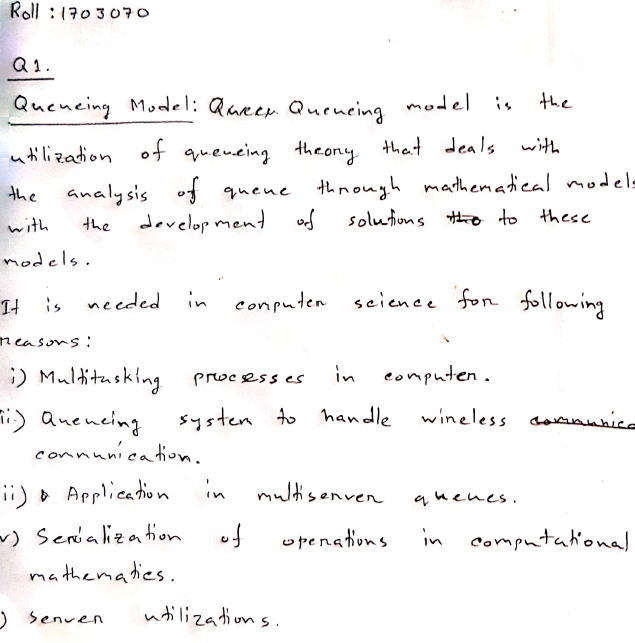 Roll : 1703070
Q1.
Queueing Model: Queueing model is the
utilization of queueing theory that deals with
the analysis of queue through mathematical models
with the development of solutions to these
models.
It is needed in computer science for following
reasons:
i) Multitasking processes in computer.
ii) Queueing system to handle wireless
communication.
ii) Application in multiserver queues.
v) Serialization of operations in computational
mathematics.
) server utilizations.